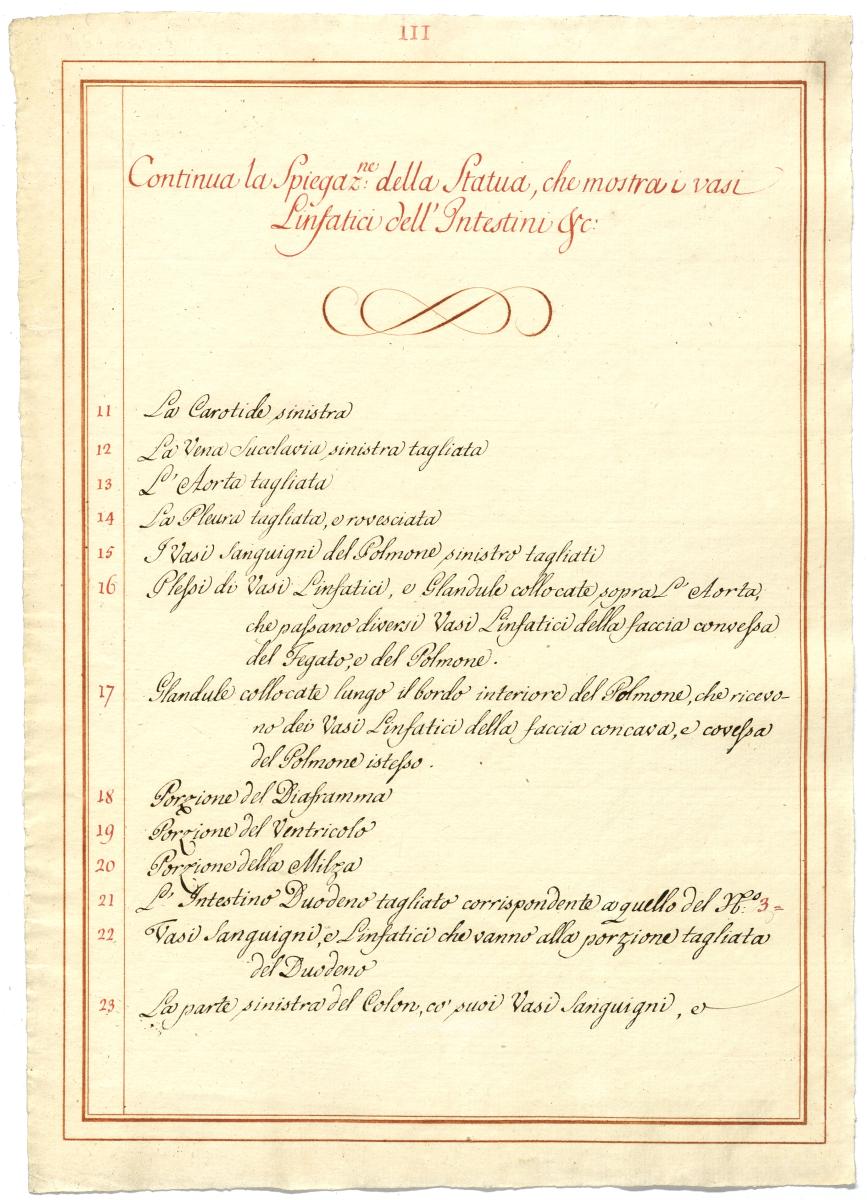 III
Continua la Spiegaz:ne della Statua, che mostra i vasi
Linfatici dell' Intestini &c:
11 La Carotide sinistra
12 La Vena Succlavia sinistra tagliata
13 L' Aorta tagliata
14 La Pleura tagliata, e rovesciata
15 I Vasi Sanguigni del Polmone sinistro tagliati
16 Plessi di Vasi Linfatici, e Glandule collocate sopra L' Aorta,
che passano diversi Vasi Linfatici della faccia convessa
del Fegato, e del Polmone.
17 Glandule collocate lungo il bordo interiore del Polmone, che ricevo-
no dei Vasi Linfatici della faccia concava, e covessa
del Polmone istesso.
18 Porzione del Diaframma
19 Porzione del Ventricolo
20 Porzione della Milza
21 L' Intestino Duodeno tagliato corrispondente a quello del N.o 3=
22 Vasi Sanguigni, e Linfatici che vanno alla porzione tagliata
del Duodeno
23 La parte sinistra del Colon, co' suoi Vasi Sanguigni, e